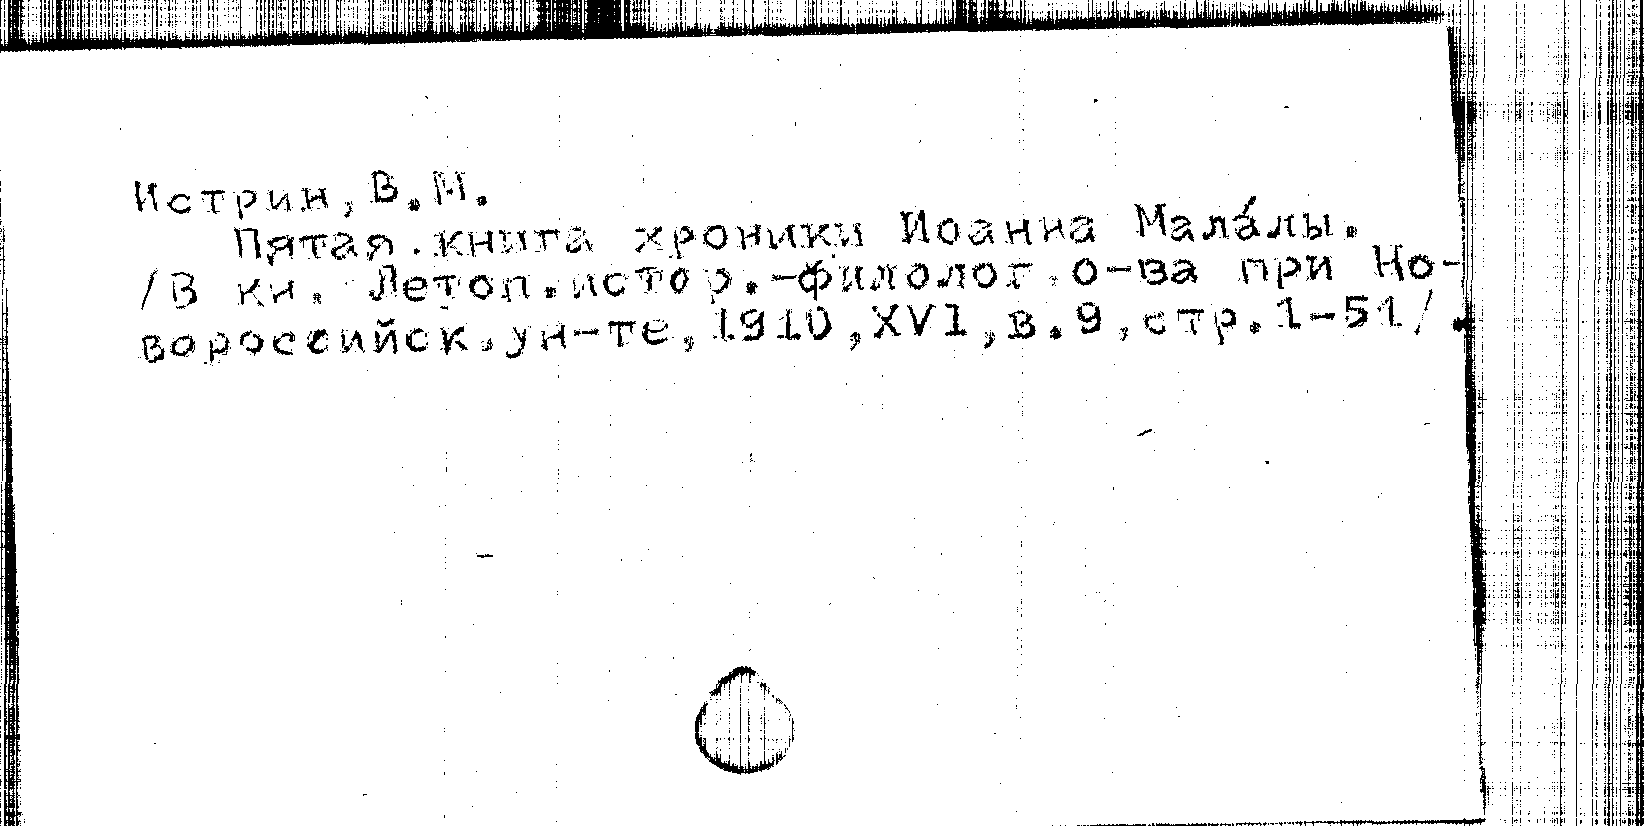 Истрин,В.М.
Пятая книга хроники Иоанна Мала́лы.
/В кн. Летоп.истор.-филолог.о-ва при Но-
вороссийск.ун-те,1910,XV1,в.9,стр.1-51/.